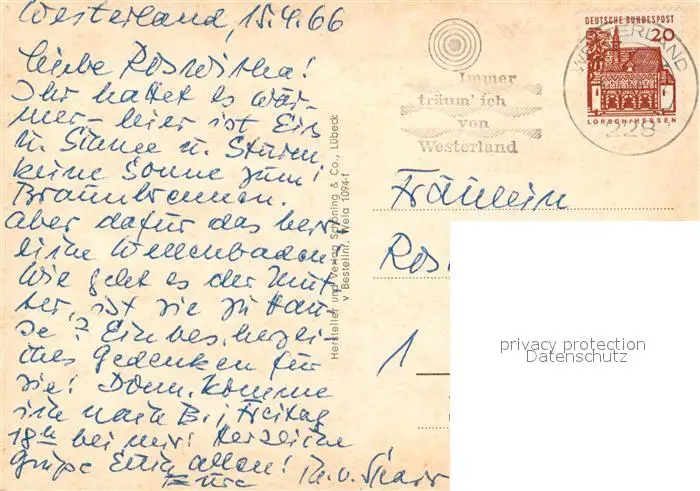 Westerland, 15.4.66
Liebe Roswitha!
Ihr hattet es wär-
mer - hier ist Eis
u. Schnee u. Sturm,
keine Sonne zum
Braunbrennen.
Aber dafür das herr-
liche Wellenbaden!
Wie geht es der Mut-
ter, ist sie zu Hau-
se? Ein bes. herzli-
ches Gedenken für
sie! Donn. komme
ich nach B., Freitag
18h bei mir! Herzliche
Grüße Euch allen!
Eure
Hersteller und Verlag Schöning & Co., Lübeck
v Bestellnr. Wela 1094-f
Immer
träum' ich
von
Westerland
DEUTSCHE BUNDESPOST
20
LORSCH/HESSEN
WESTERLAND
228
Fräulein
Ros
1
privacy protection
Datenschutz